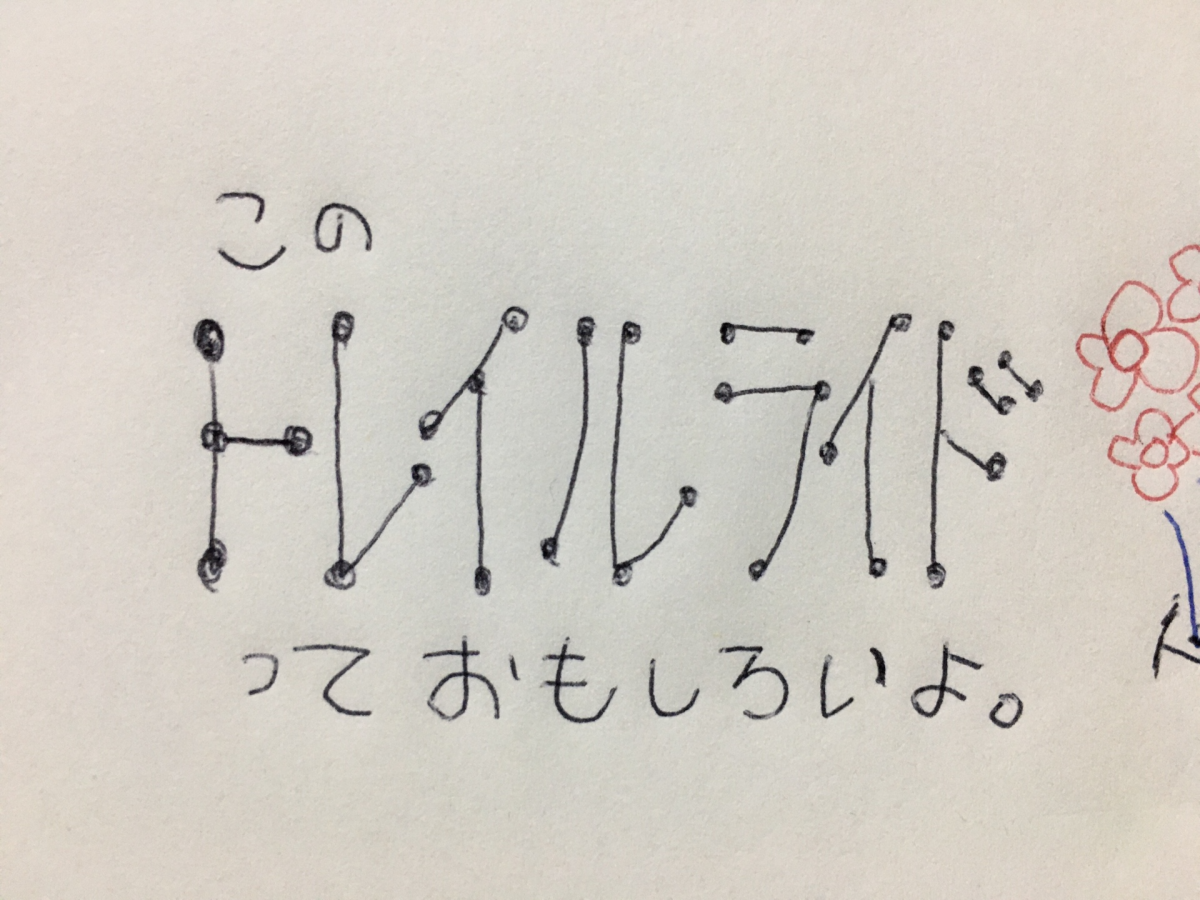 この
トレイルライド
っておもしろいよ。